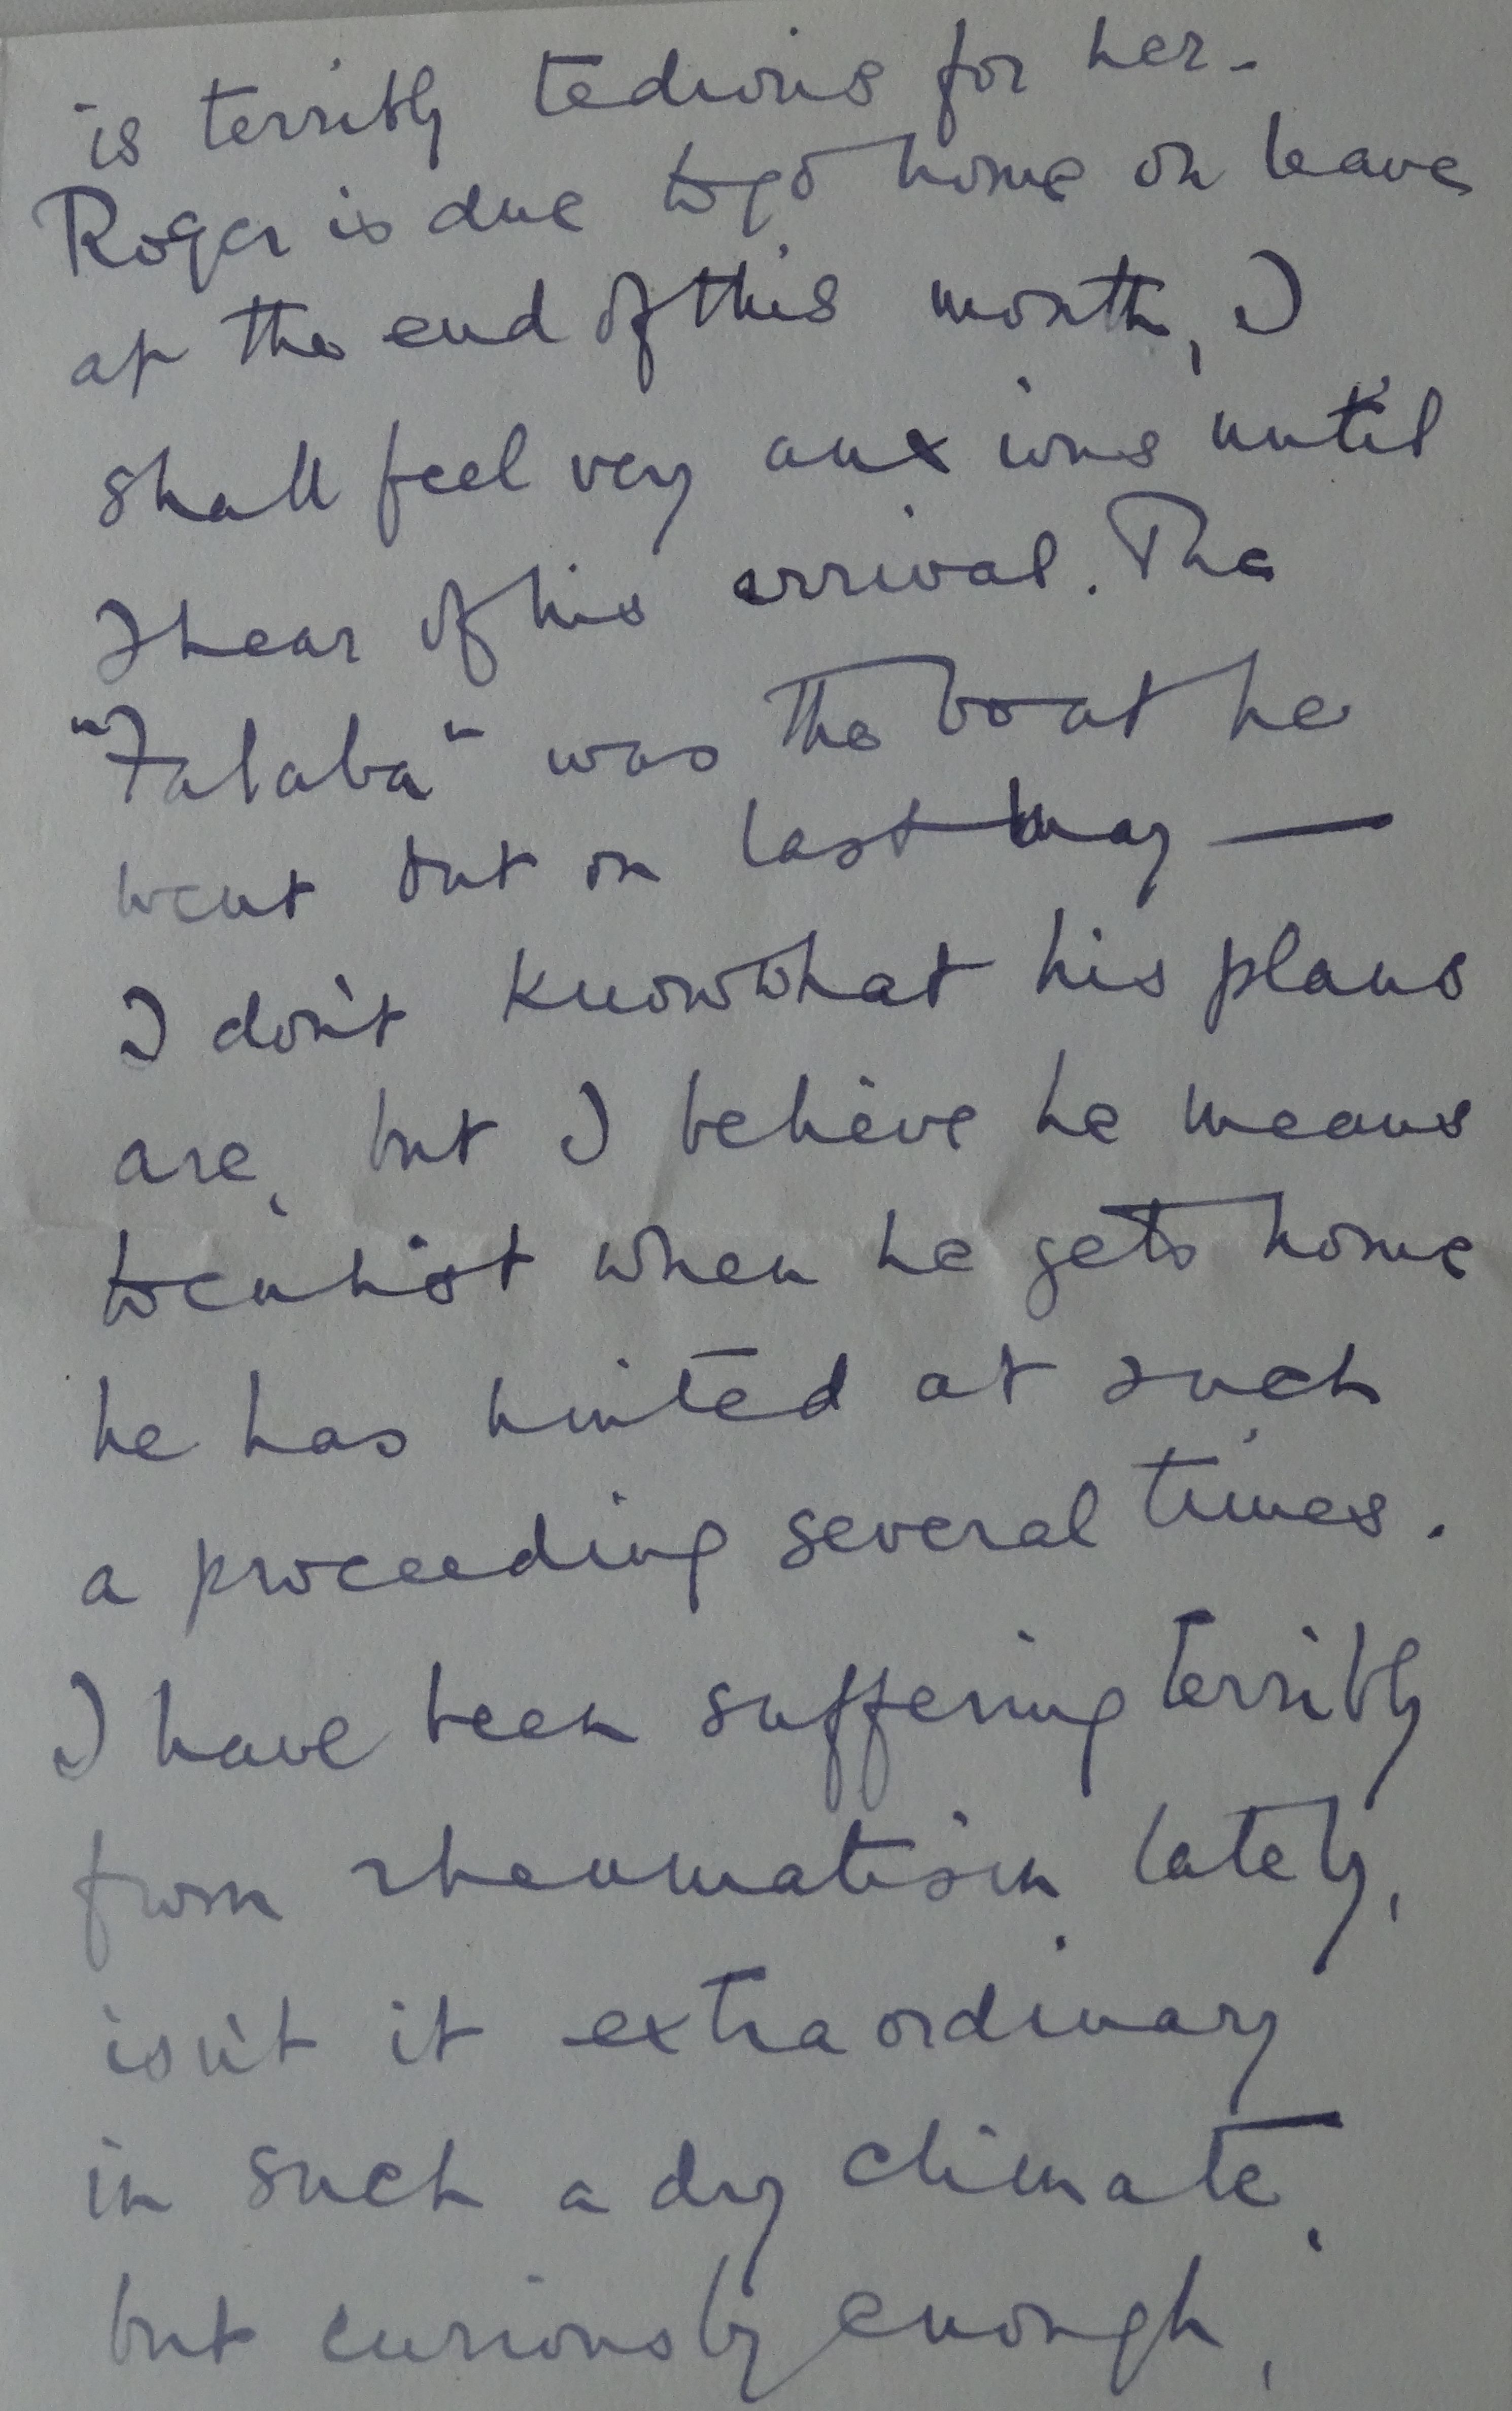 is terribly tedious for her -
Roger is due to go home on leave
at the end of this month, I
shall feel very anxious until
I hear of his arrival. The
"Falaba" was the boat he
went out on last May —
I don't know what his plans
are, but I believe he means
to enlist when he gets home
he has hinted at such
a proceeding several times.
I have been suffering terribly
from rheumatism lately,
isn't it extraordinary
in such a dry climate,
but curiously enough,